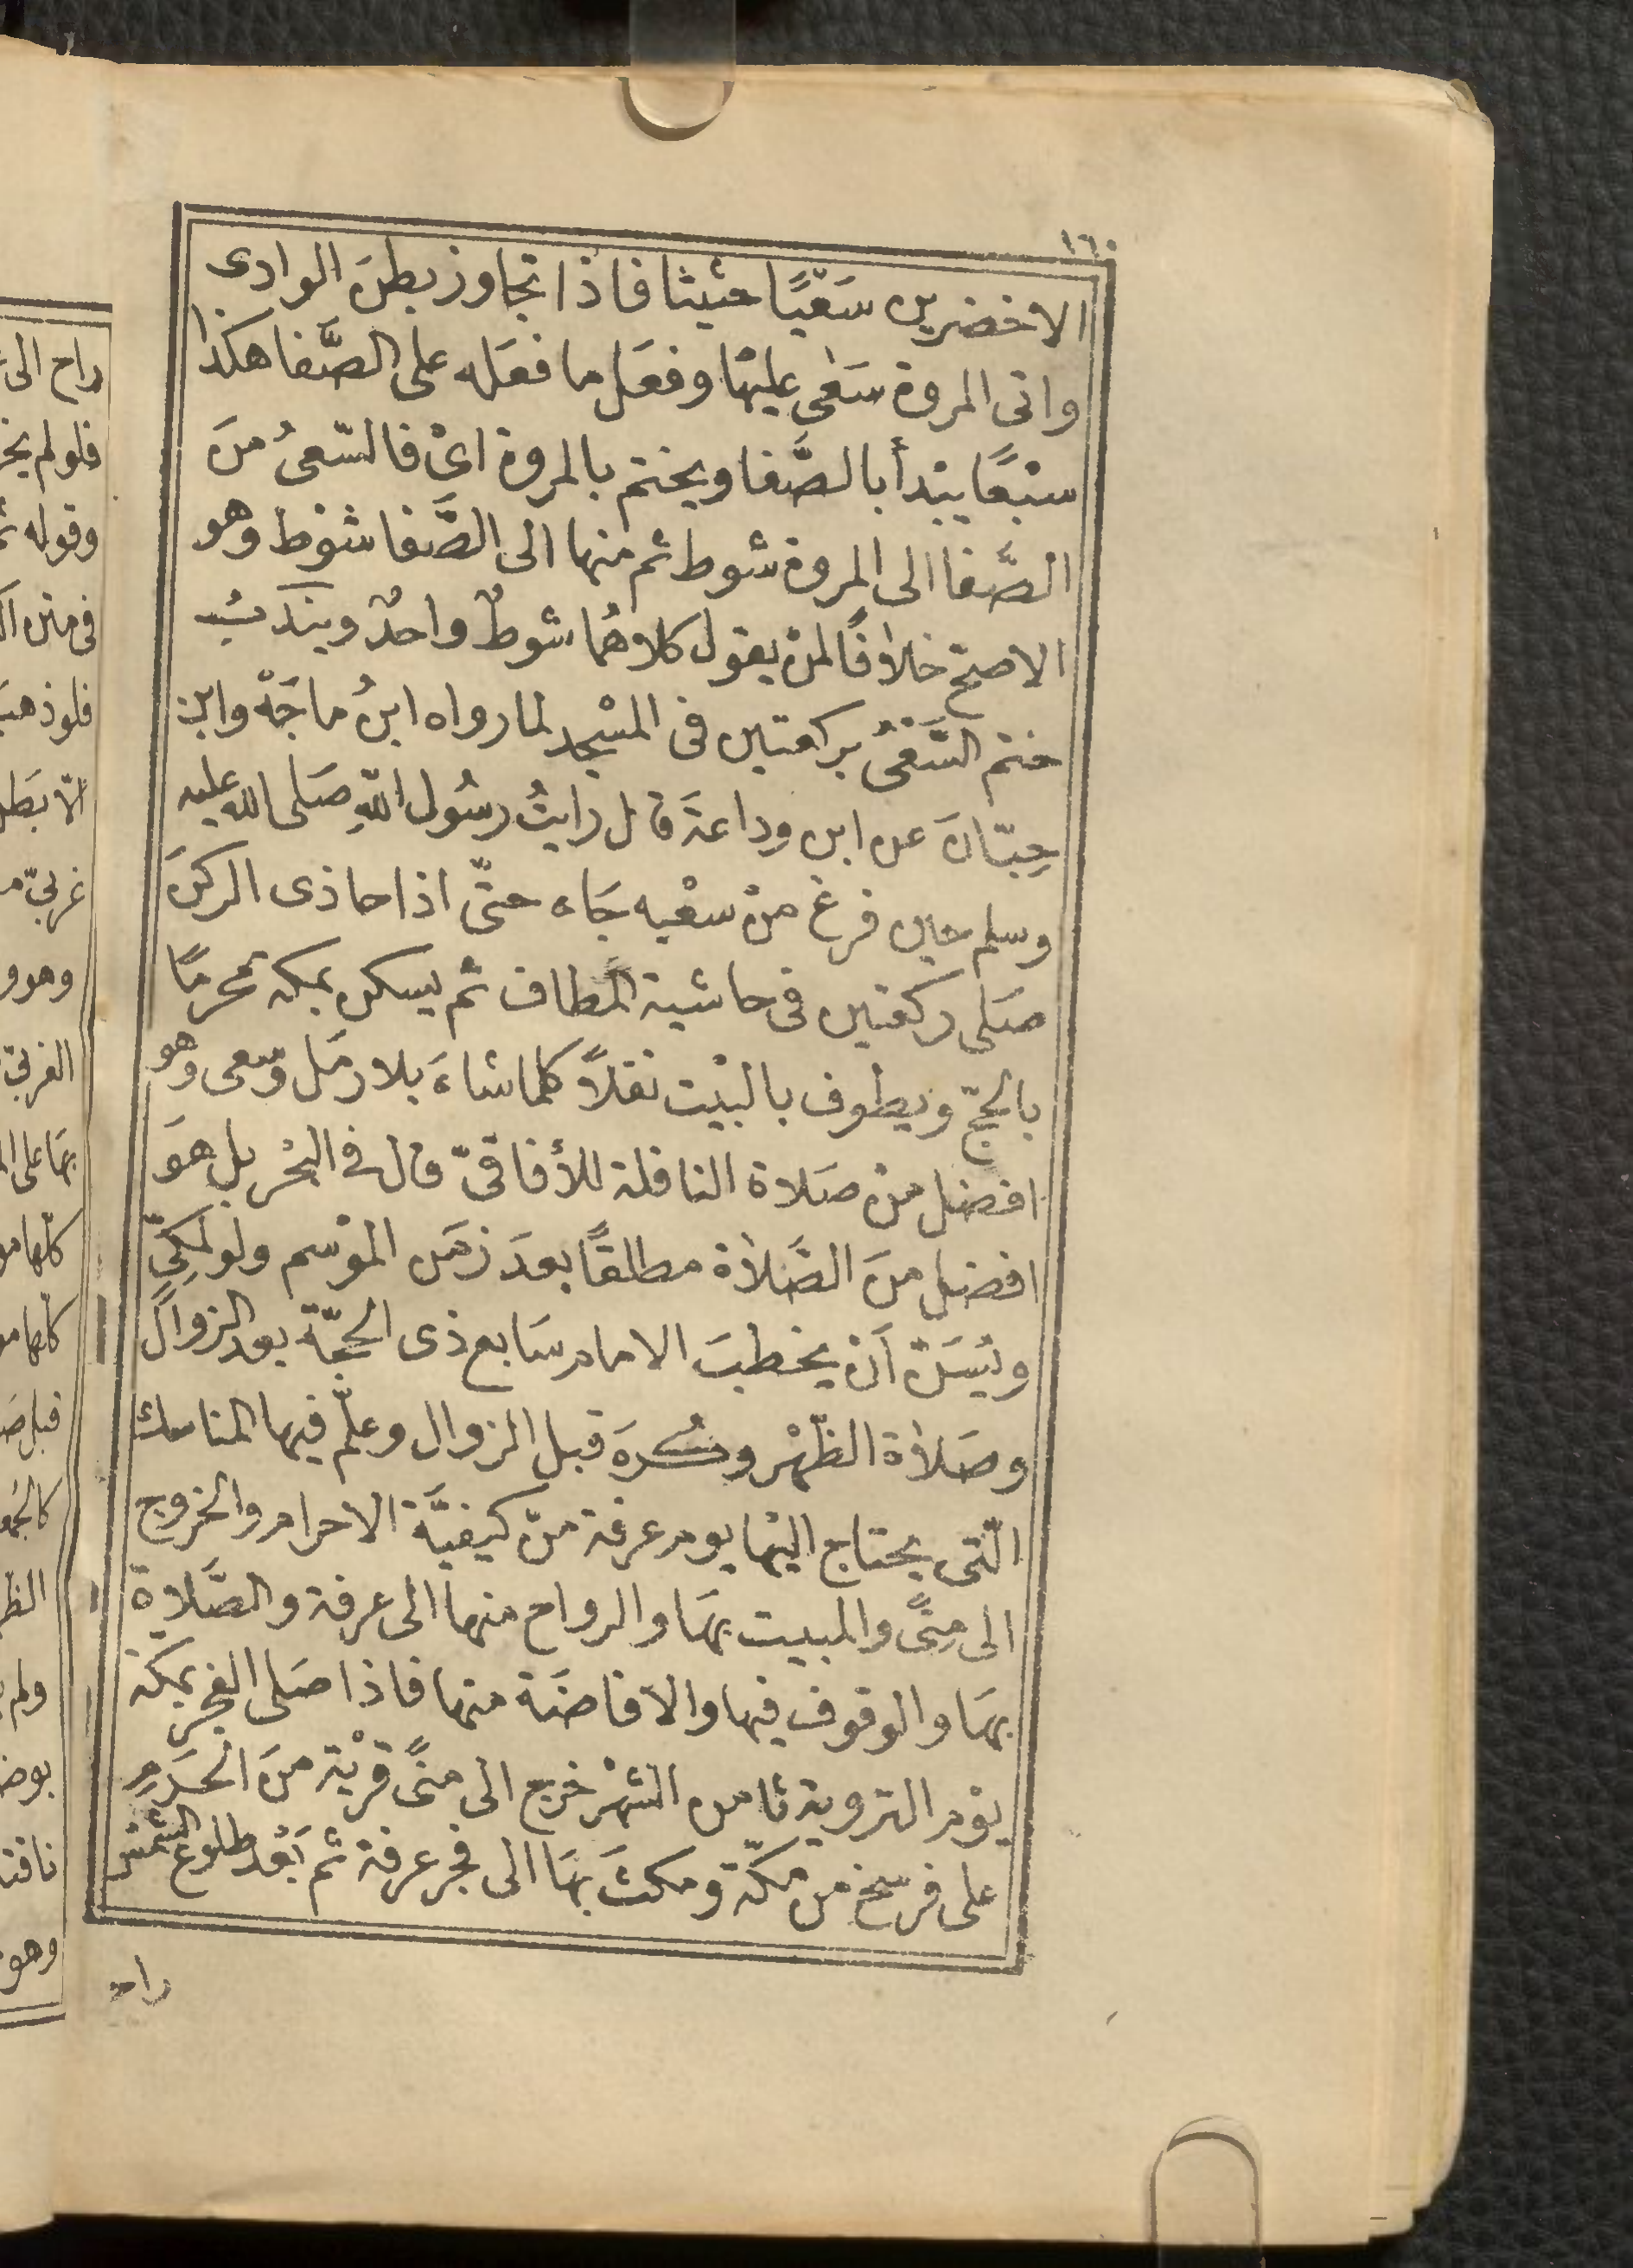 ١٦٠
الاخضرين سَعْيًا حثيثا فاذا تجاوز بطنَ الوادى
واتى المروة سَعٰى عليهَا وفعَل ما فعَله على الصَّفا هكذا
سبْعًا يبْدأ بالصَّفا ويختم بالمروة اىْ فالسّعىُ منَ
الصَّفا الى المروة شوط ثم منها الى الصَّفا شوْط وهو
الاصحّ خلاٰفًا لمنْ يقول كلاهُما شوطٌ واحدٌ ويندَبُ
ختم السَّعْىُ بركعتين فى المسْجد لما رواه ابنُ ماجَةْ وابن
حِبّانَ عن ابن وداعةَ قال رايتُ رسُول اللّهِ صَلى الله عليه
وسلم حين فرغ منْ سعْيه جَاء حتّى اذا حاذى الركنَ
صَلى ركعتين فى حاشية المطاف ثم يسكن بمكه محرمًا
بالحجّ ويطوف بالبيْت نفلاً كلما شاءَ بلا رمَل وسعى وهو
افضل منْ صَلاة النافلة للأفاقىّ قال فى البحْر بل هوَ
افضل منَ الصَّلاٰة مطلقًا بعدَ زمَن الموْسم ولو لمكِىّ
ويُسَنّ اَنْ يخطبَ الامام سَابع ذى الحجّة بعد الزوال
وصَلاٰة الظّهْر وكُرهَ قبل الزوال وعلّم فيها المناسك
الّتى يحتاج اليْها يوم عرفة منْ كيفيَّة الاحرام والخروج
الى مِنًى والمبيت بهَا والرواح منها الى عرفة والصَّلاة
بهَا والوقوف فيها والافاضَة منها فاذا صَلى الفجر بمكة
يوْم التروية ثامن الشهْر خرج الى منًى قرْية منَ الحَرَمِ
على فرسخ من مكّة ومكثَ بهَا الى فجر عرفة ثم بَعْد طلوع الشمْس
راح